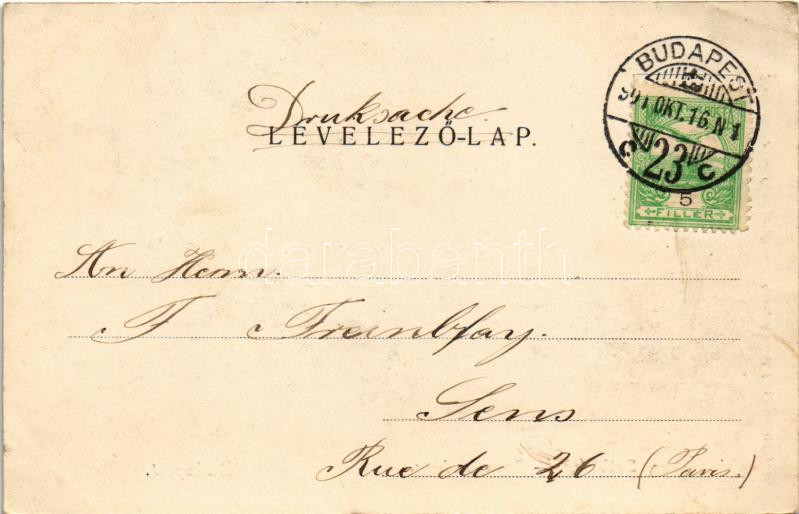 Druksache.
LEVELEZŐ-LAP.
BUDAPEST
901 OKT. 16 N 1
C 23 C
5
FILLÉR
darabanth
An Herrn.
F Freinbfay.
Sens
Rue de 26 (Paris.)